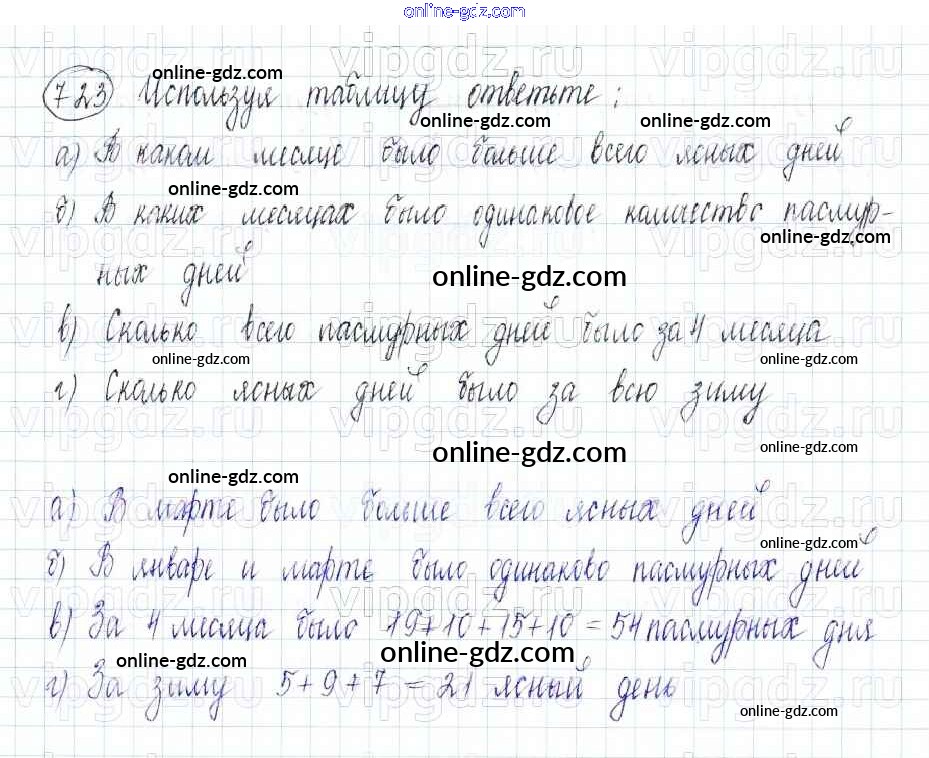 online-gdz.com
vipgdz.ru vipgdz.ru vipgdz.ru
online-gdz.com
723 Используя таблицу ответьте:
online-gdz.com online-gdz.com
а) В каком месяце было больше всего ясных дней
online-gdz.com
б) В каких месяцах было одинаковое количество пасмур-
online-gdz.com
ных дней
online-gdz.com
в) Сколько всего пасмурных дней было за 4 месяца
online-gdz.com online-gdz.com
г) Сколько ясных дней было за всю зиму
online-gdz.com online-gdz.com
online-gdz.com
а) В марте было больше всего ясных дней
online-gdz.com
б) В январе и марте было одинаково пасмурных дней
в) За 4 месяца было 19+10+15+10=54 пасмурных дня
online-gdz.com online-gdz.com
г) За зиму 5+9+7=21 ясный день
online-gdz.com